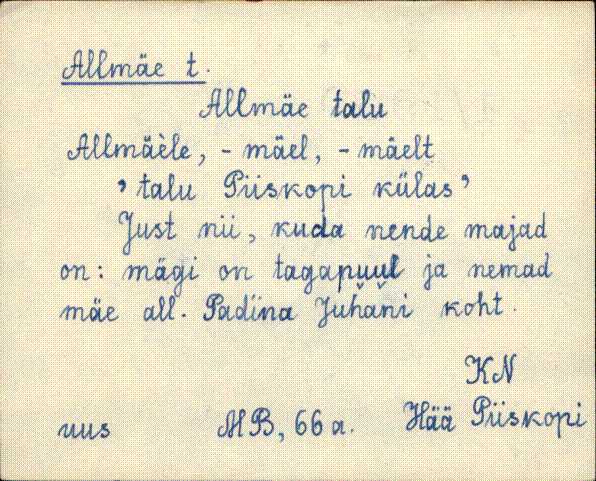 Allmäe t.
Allmäe talu
Allmäèle, - mäel, - mäelt
, talu Piiskopi külas ,
Just nii, kuda nende majad
on: mägi on tagapuul ja nemad
mäe all. Padina Juhani koht.
KN
uus MB, 66 a. Hää Piiskopi